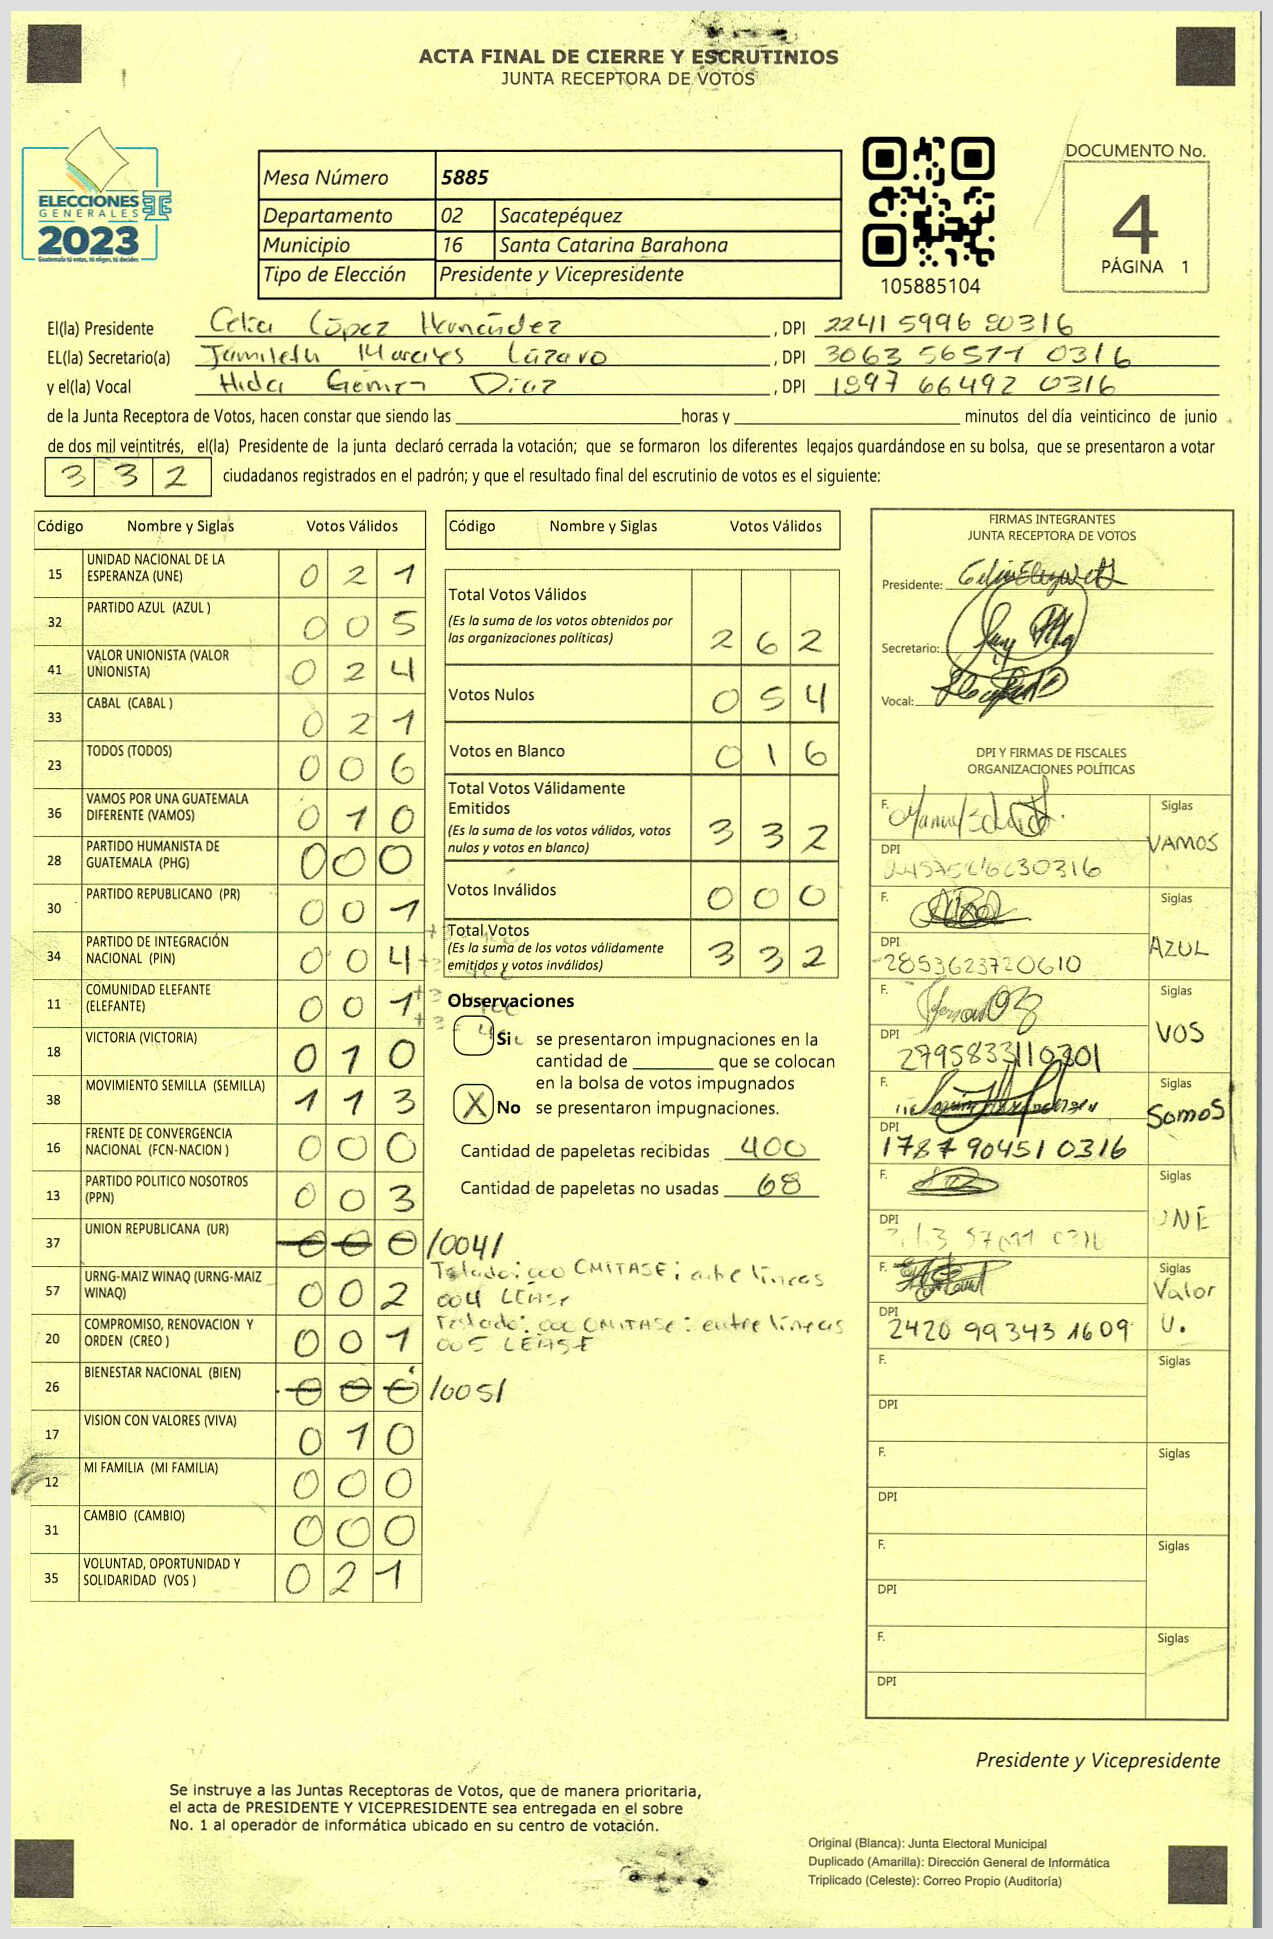 ACTA FINAL DE CIERRE Y ESCRUTINIOS
JUNTA RECEPTORA DE VOTOS
ELECCIONES
GENERALES
2023
Guatemala tú votas, tú eliges, tú decides
Mesa Número 5885
Departamento 02 Sacatepéquez
Municipio 16 Santa Catarina Barahona
Tipo de Elección Presidente y Vicepresidente
105885104
DOCUMENTO No.
4
PÁGINA 1
El(la) Presidente Celia López Hernández, DPI 2241 5996 80316
EL(la) Secretario(a) Jamileth Morales Lázaro, DPI 3063 56571 0316
y el(la) Vocal Hilda Gómez Díaz, DPI 1897 66492 0316
de la Junta Receptora de Votos, hacen constar que siendo las horas y minutos del día veinticinco de junio
de dos mil veintitrés, el(la) Presidente de la junta declaró cerrada la votación; que se formaron los diferentes legajos guardándose en su bolsa, que se presentaron a votar
332 ciudadanos registrados en el padrón; y que el resultado final del escrutinio de votos es el siguiente:
Código Nombre y Siglas Votos Válidos
15 UNIDAD NACIONAL DE LA ESPERANZA (UNE) 021
32 PARTIDO AZUL (AZUL ) 005
41 VALOR UNIONISTA (VALOR UNIONISTA) 024
33 CABAL (CABAL ) 021
23 TODOS (TODOS) 006
36 VAMOS POR UNA GUATEMALA DIFERENTE (VAMOS) 010
28 PARTIDO HUMANISTA DE GUATEMALA (PHG) 000
30 PARTIDO REPUBLICANO (PR) 001
34 PARTIDO DE INTEGRACIÓN NACIONAL (PIN) 004
11 COMUNIDAD ELEFANTE (ELEFANTE) 001
18 VICTORIA (VICTORIA) 010
38 MOVIMIENTO SEMILLA (SEMILLA) 113
16 FRENTE DE CONVERGENCIA NACIONAL (FCN-NACION ) 000
13 PARTIDO POLITICO NOSOTROS (PPN) 003
37 UNION REPUBLICANA (UR) 000 /004/
57 URNG-MAIZ WINAQ (URNG-MAIZ WINAQ) 002
20 COMPROMISO, RENOVACION Y ORDEN (CREO ) 001
26 BIENESTAR NACIONAL (BIEN) 000 /005/
17 VISION CON VALORES (VIVA) 010
12 MI FAMILIA (MI FAMILIA) 000
31 CAMBIO (CAMBIO) 000
35 VOLUNTAD, OPORTUNIDAD Y SOLIDARIDAD (VOS ) 021
Código Nombre y Siglas Votos Válidos
Total Votos Válidos
(Es la suma de los votos obtenidos por
las organizaciones políticas) 262
Votos Nulos 054
Votos en Blanco 016
Total Votos Válidamente
Emitidos
(Es la suma de los votos válidos, votos
nulos y votos en blanco) 332
Votos Inválidos 000
Total Votos
(Es la suma de los votos válidamente
emitidos y votos inválidos) 332
Observaciones
Si se presentaron impugnaciones en la
cantidad de que se colocan
en la bolsa de votos impugnados
X No se presentaron impugnaciones.
Cantidad de papeletas recibidas 400
Cantidad de papeletas no usadas 68
Testado: 000 OMITASE; entre líneas
004 LEASE
Testado: 000 OMITASE: entre líneas
005 LEASE
FIRMAS INTEGRANTES
JUNTA RECEPTORA DE VOTOS
Presidente:
Secretario:
Vocal:
DPI Y FIRMAS DE FISCALES
ORGANIZACIONES POLÍTICAS
F. Siglas
DPI VAMOS
F. Siglas
DPI 2853623720610 AZUL
F. Siglas
DPI 2795833110301 VOS
F. Siglas
DPI 1787 90451 0316 SomoS
F. Siglas
DPI UNE
F. Siglas
DPI 2420 99343 1609 Valor U.
F. Siglas
DPI
F. Siglas
DPI
F. Siglas
DPI
F. Siglas
DPI
Presidente y Vicepresidente
Se instruye a las Juntas Receptoras de Votos, que de manera prioritaria,
el acta de PRESIDENTE Y VICEPRESIDENTE sea entregada en el sobre
No. 1 al operador de informática ubicado en su centro de votación.
Original (Blanca): Junta Electoral Municipal
Duplicado (Amarilla): Dirección General de Informática
Triplicado (Celeste): Correo Propio (Auditoría)